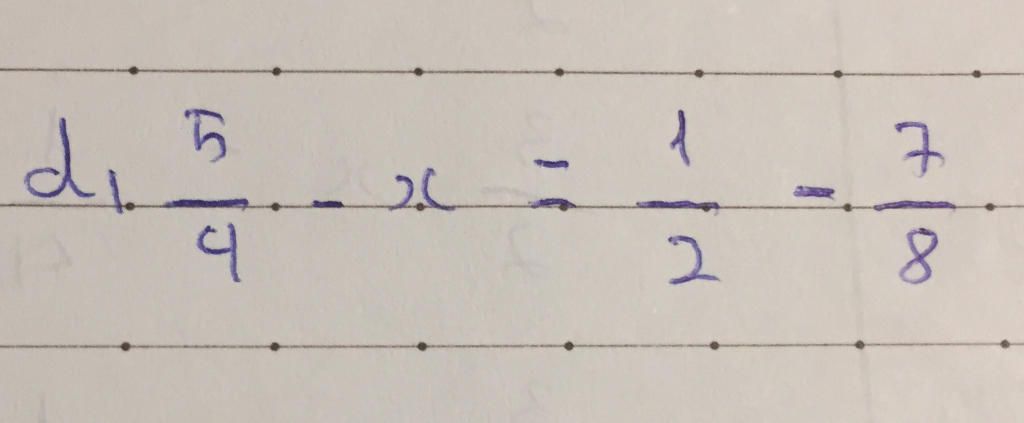 d, 5/4 - x = 1/2 - 7/8